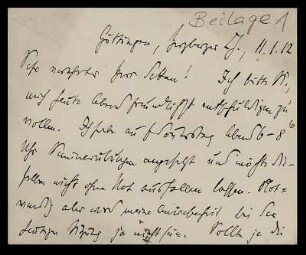 Beilage 1
Göttingen, Herzberger Ch., 11.1.12
Sehr verehrter Herr Dekan! Ich bitte Sie,
mich heute Abend freundlichst entschuldigen zu
wollen. Ich habe auf Donnerstag Abend 6-8
Uhr Seminarübungen angesetzt und möchte die-
selben nicht ohne Not ausfallen lassen. Not-
wendig aber wird meine Anwesenheit bei der
heutigen Sitzung ja nicht sein. Sollte ja die